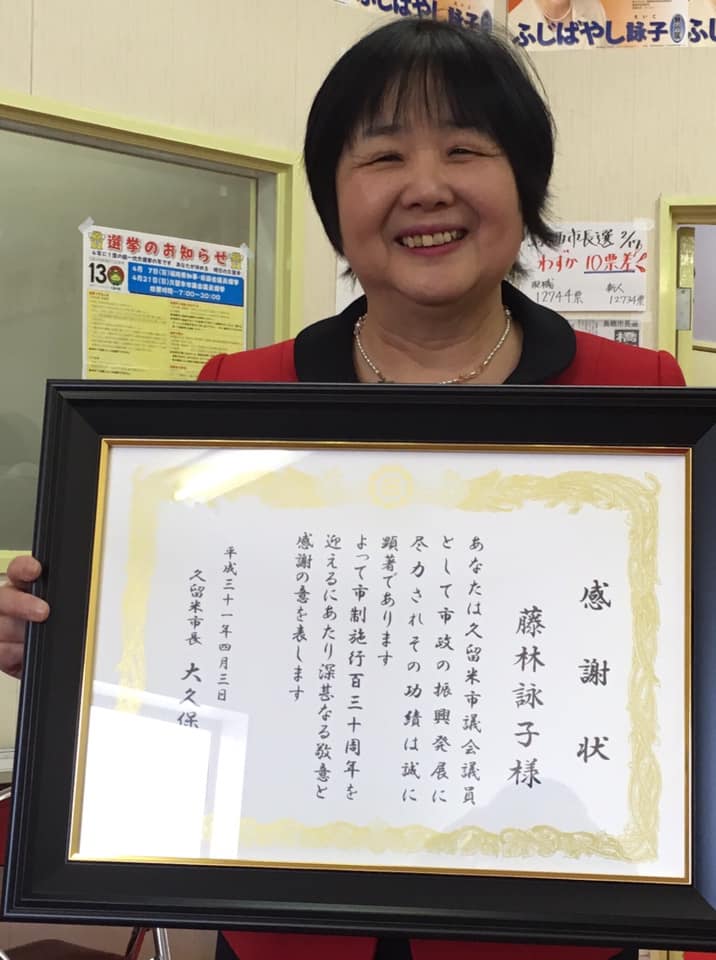 ふじばやし詠子
えいこ
ふじ
選挙のお知らせ
4月 7日(日)福岡県知事・県議会議員選挙
4月21日(日)久留米市議会議員選挙
投票時間 7:00~20:00
市長選
わずか 10票差
現職
12744票
新人
12734票
感謝状
藤林詠子様
あなたは久留米市議会議員
として市政の振興発展に
尽力されその功績は誠に
顕著であります
よって市制施行百三十周年を
迎えるにあたり深甚なる敬意と
感謝の意を表します
平成三十一年四月三日
久留米市長 大久保